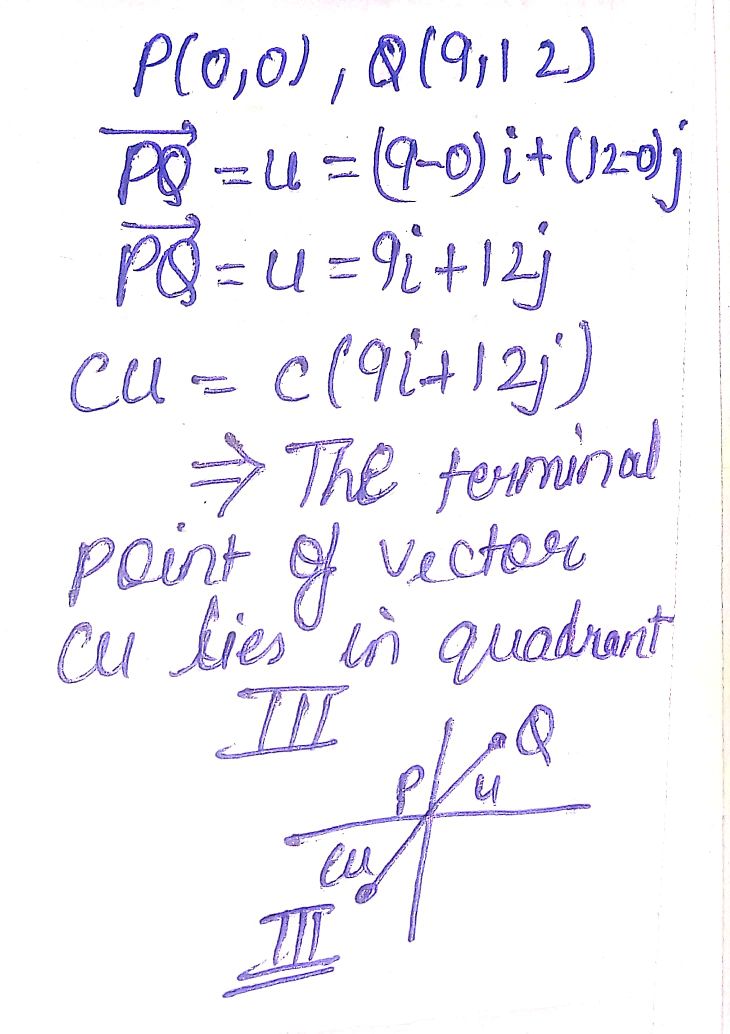 P(0,0), Q(9,12)
PQ = u = (9-0)i + (12-0)j
PQ = u = 9i + 12j
cu = c(9i+12j)
⇒ The terminal
point of vector
cu lies in quadrant
III
Q
P u
cu
III